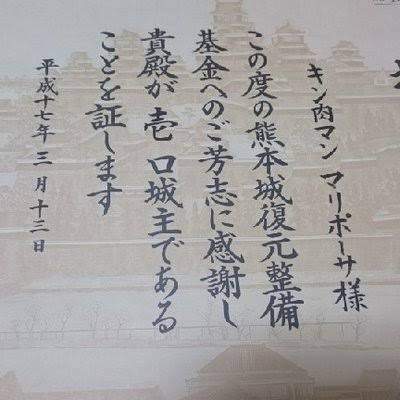 キン肉マン マリポーサ様
この度の熊本城復元整備
基金へのご芳志に感謝し
貴殿が 壱 口城主である
ことを証します
平成十七年 三 月 十三 日